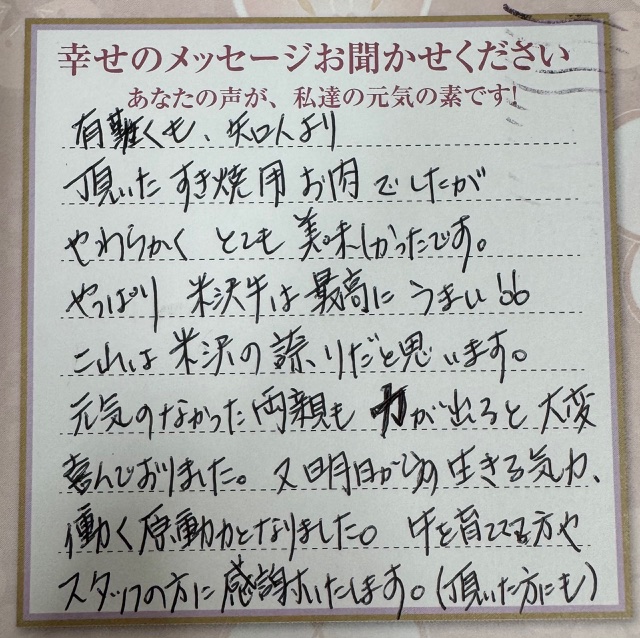 幸せのメッセージお聞かせください
あなたの声が、私達の元気の素です!
有難くも、知人より
頂いたすき焼用お肉でしたが
やわらかくとても美味しかったです。
やっぱり米沢牛は最高にうまい!!
これは米沢の誇りだと思います。
元気のなかった両親も力が出ると大変
喜んでおりました。又明日からの生きる気力、
働く原動力となりました。牛を育ててる方や
スタッフの方に感謝いたします。(頂いた方にも)